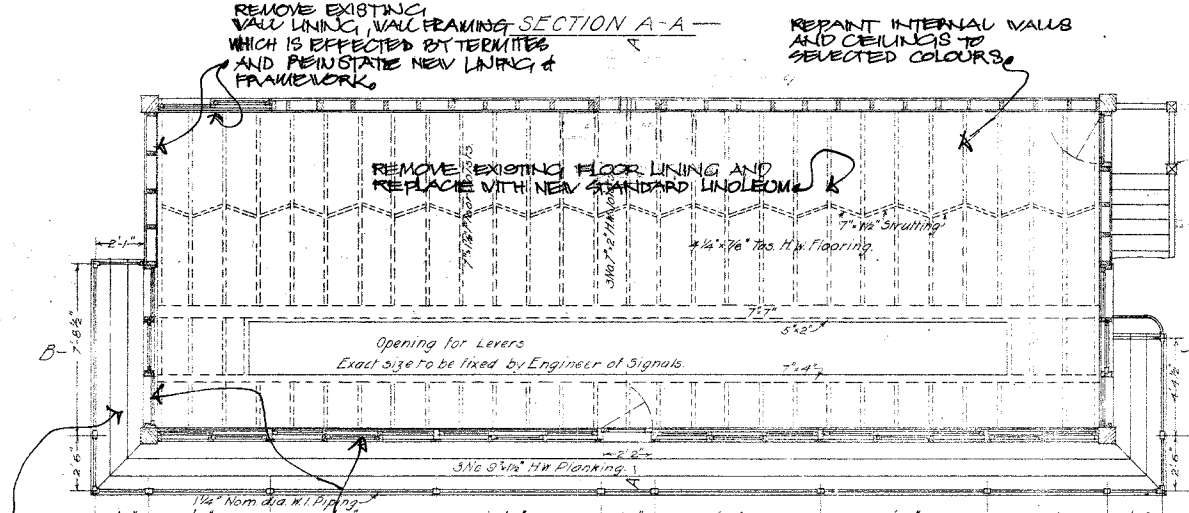 REMOVE EXISTING
WALL LINING, WALL FRAMING
WHICH IS EFFECTED BY TERMITES
AND REINSTATE NEW LINING &
FRAMEWORK.
SECTION A-A
REPAINT INTERNAL WALLS
AND CEILINGS TO
SELECTED COLOURS.
REMOVE EXISTING FLOOR LINING AND
REPLACE WITH NEW STANDARD LINOLEUM.
7"x1½" Strutting
4¼"x⅞" Tas. H.W. Flooring.
2'-1"
7"x7"
5"x2"
Opening for Levers
Exact size to be fixed by Engineer of Signals.
7"x4"
B-
7'-8½"
4'-4½"
2'-6"
2'-6"
2'-2"
3No 9"x1½" H.W. Planking.
A
1¼" Nom. dia. W.I. Piping